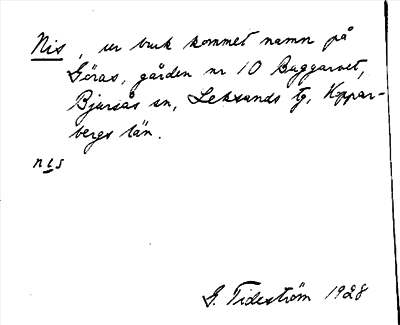 Nis, ur bruk kommet namn på
Göras, gården nr 10 Buggarvet,
Bjursås sn, Leksands tg, Koppar-
bergs län.
nis
G. Tideström 1928